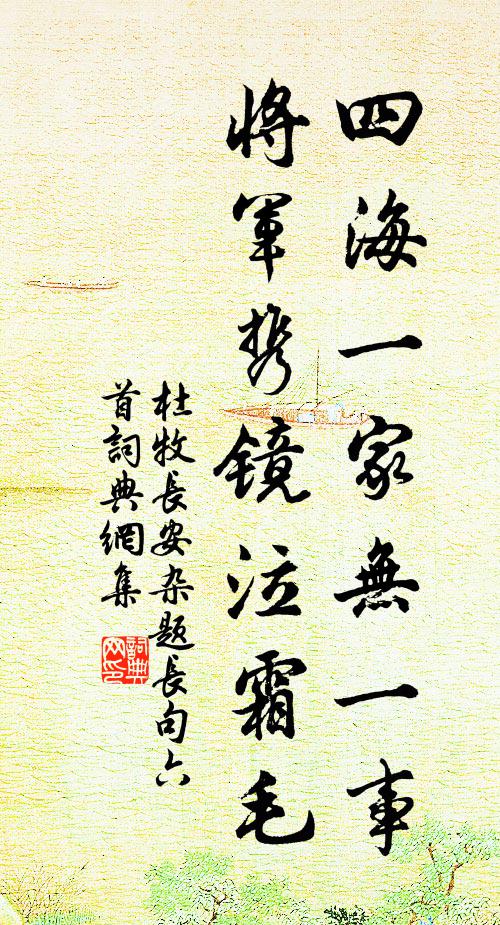 四海一家無一事
將軍携鏡泣霜毛
杜牧長安杂題長句六
首詞典網集
詞典
网印